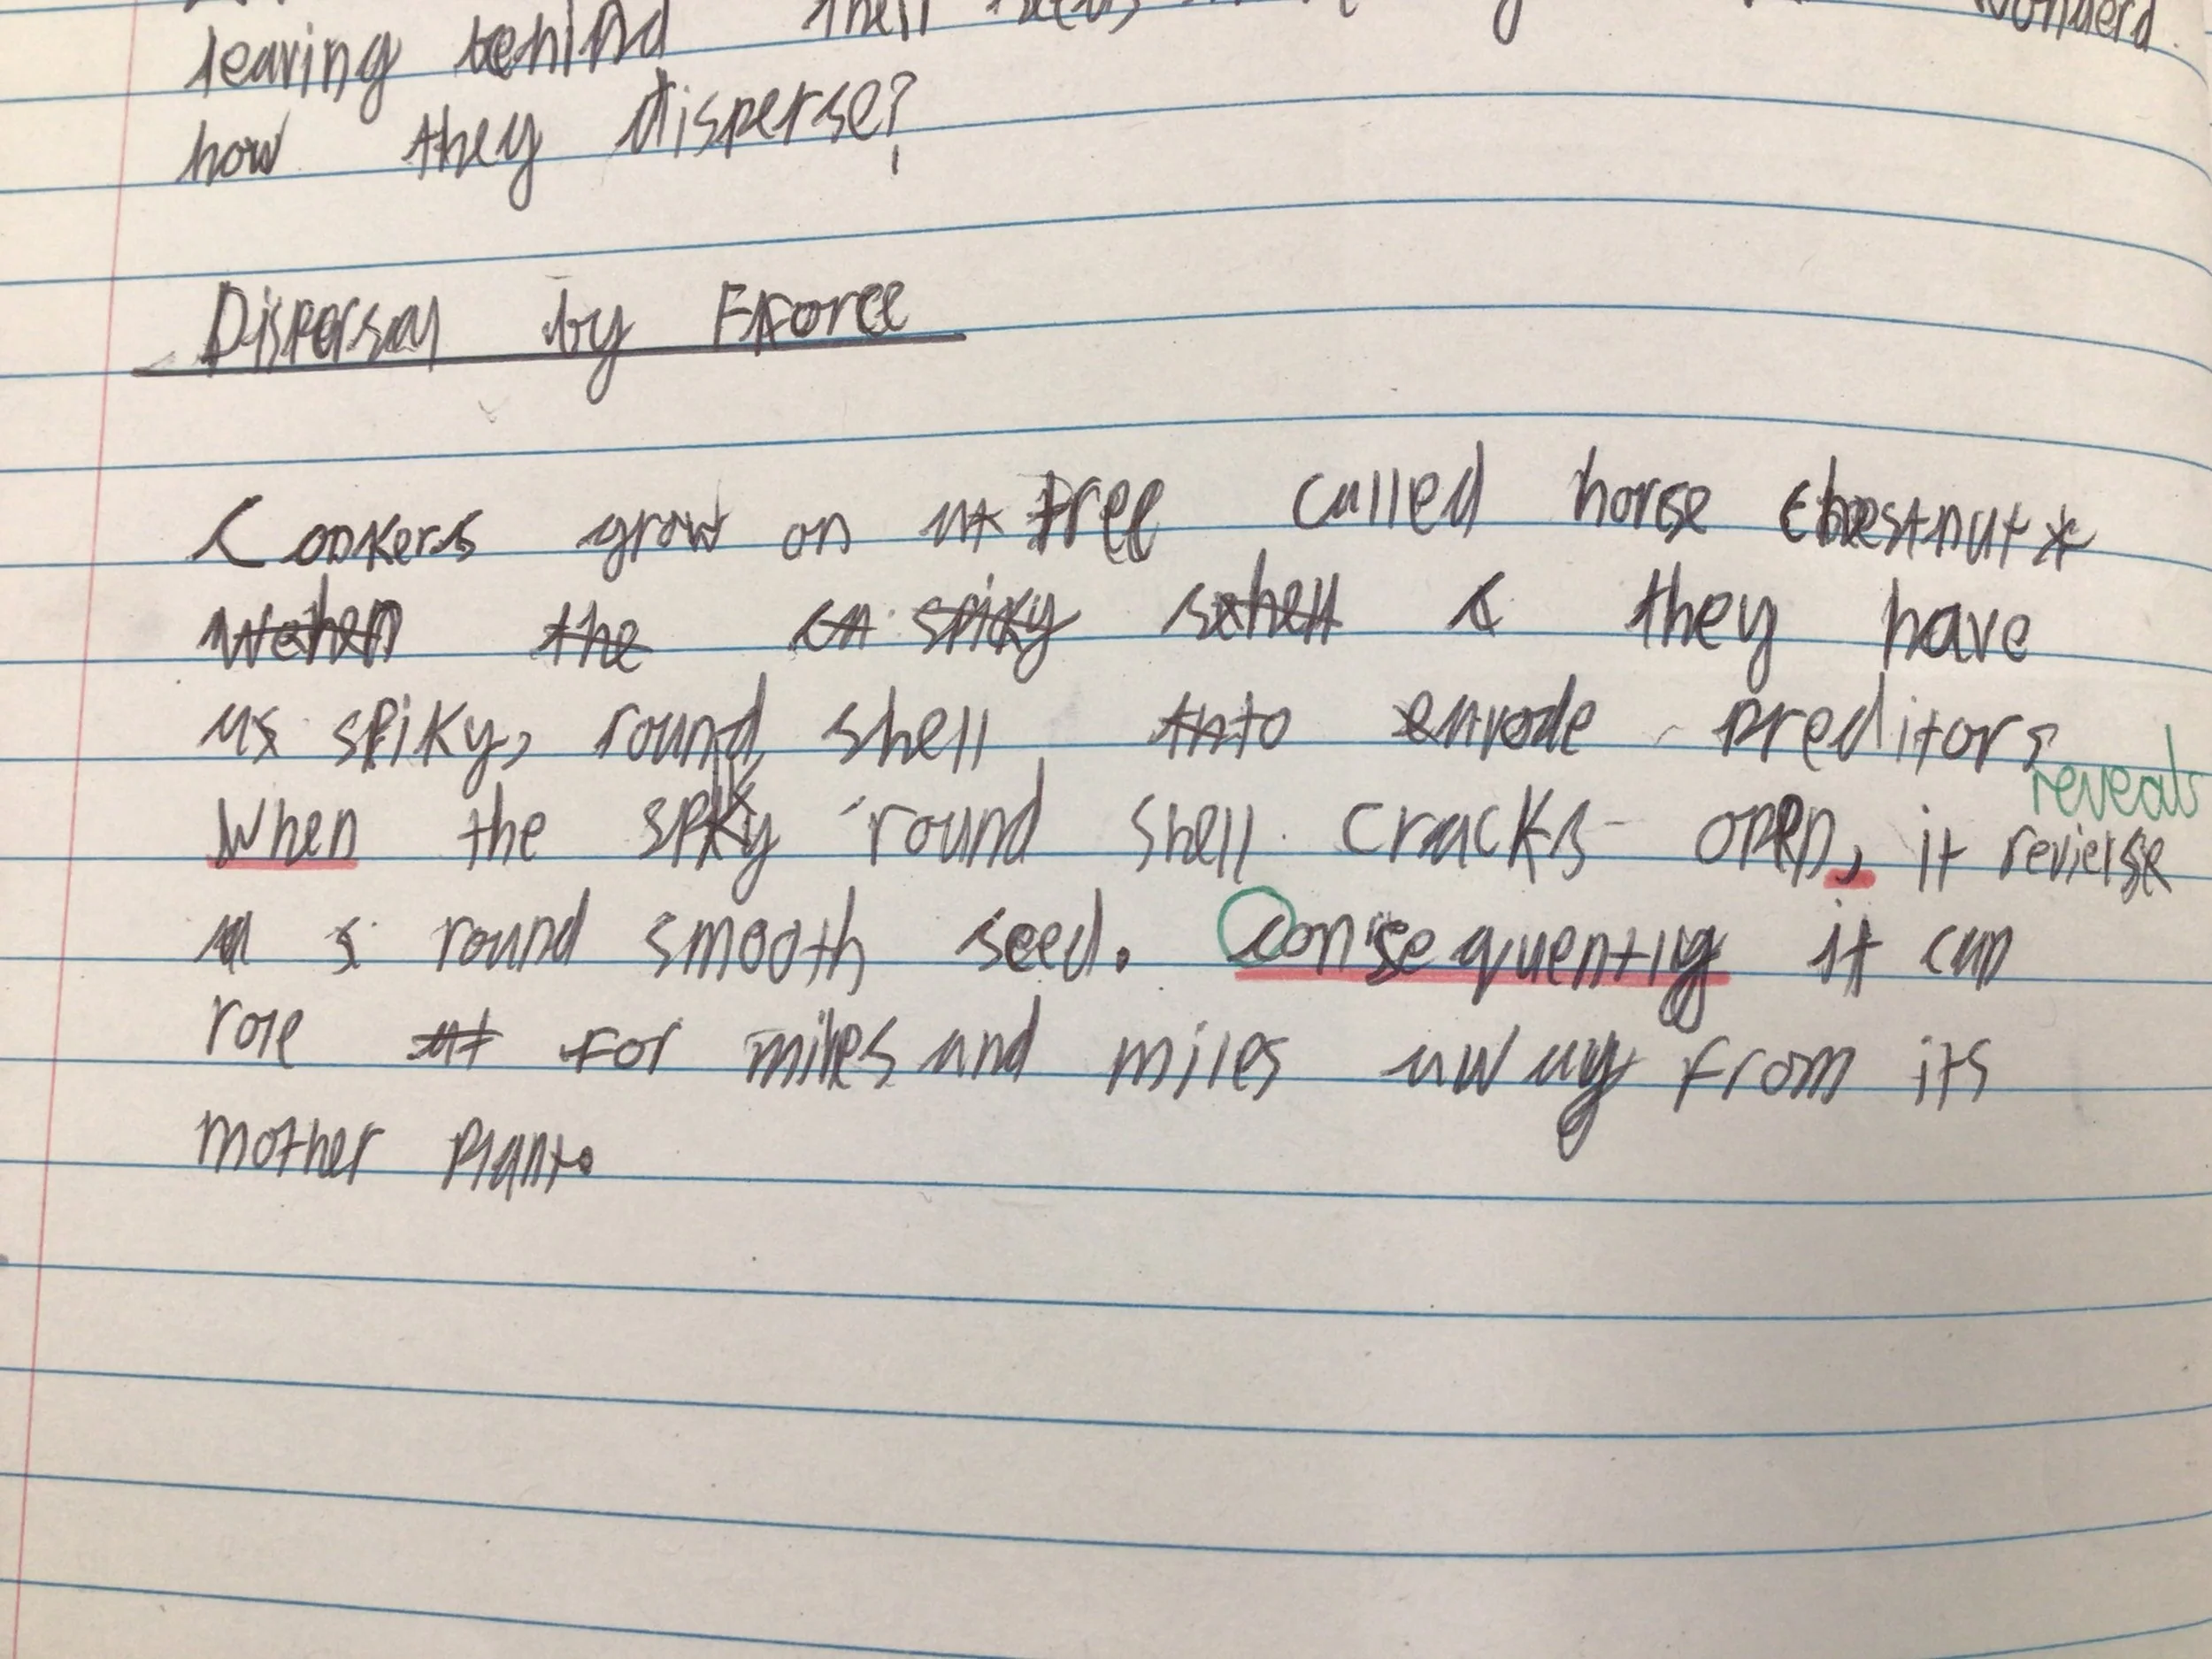 leaving behind their seeds wonderd
how they disperse?
Dispersal by Force
Conkers grow on a tree called horse chestnut*
when the spiky shell they have
a spiky, round shell to envode preditors
reveals
When the spiky round shell cracks open, it revierse
a round smooth seed. Consequently it can
role for miles and miles away from its
mother plant.